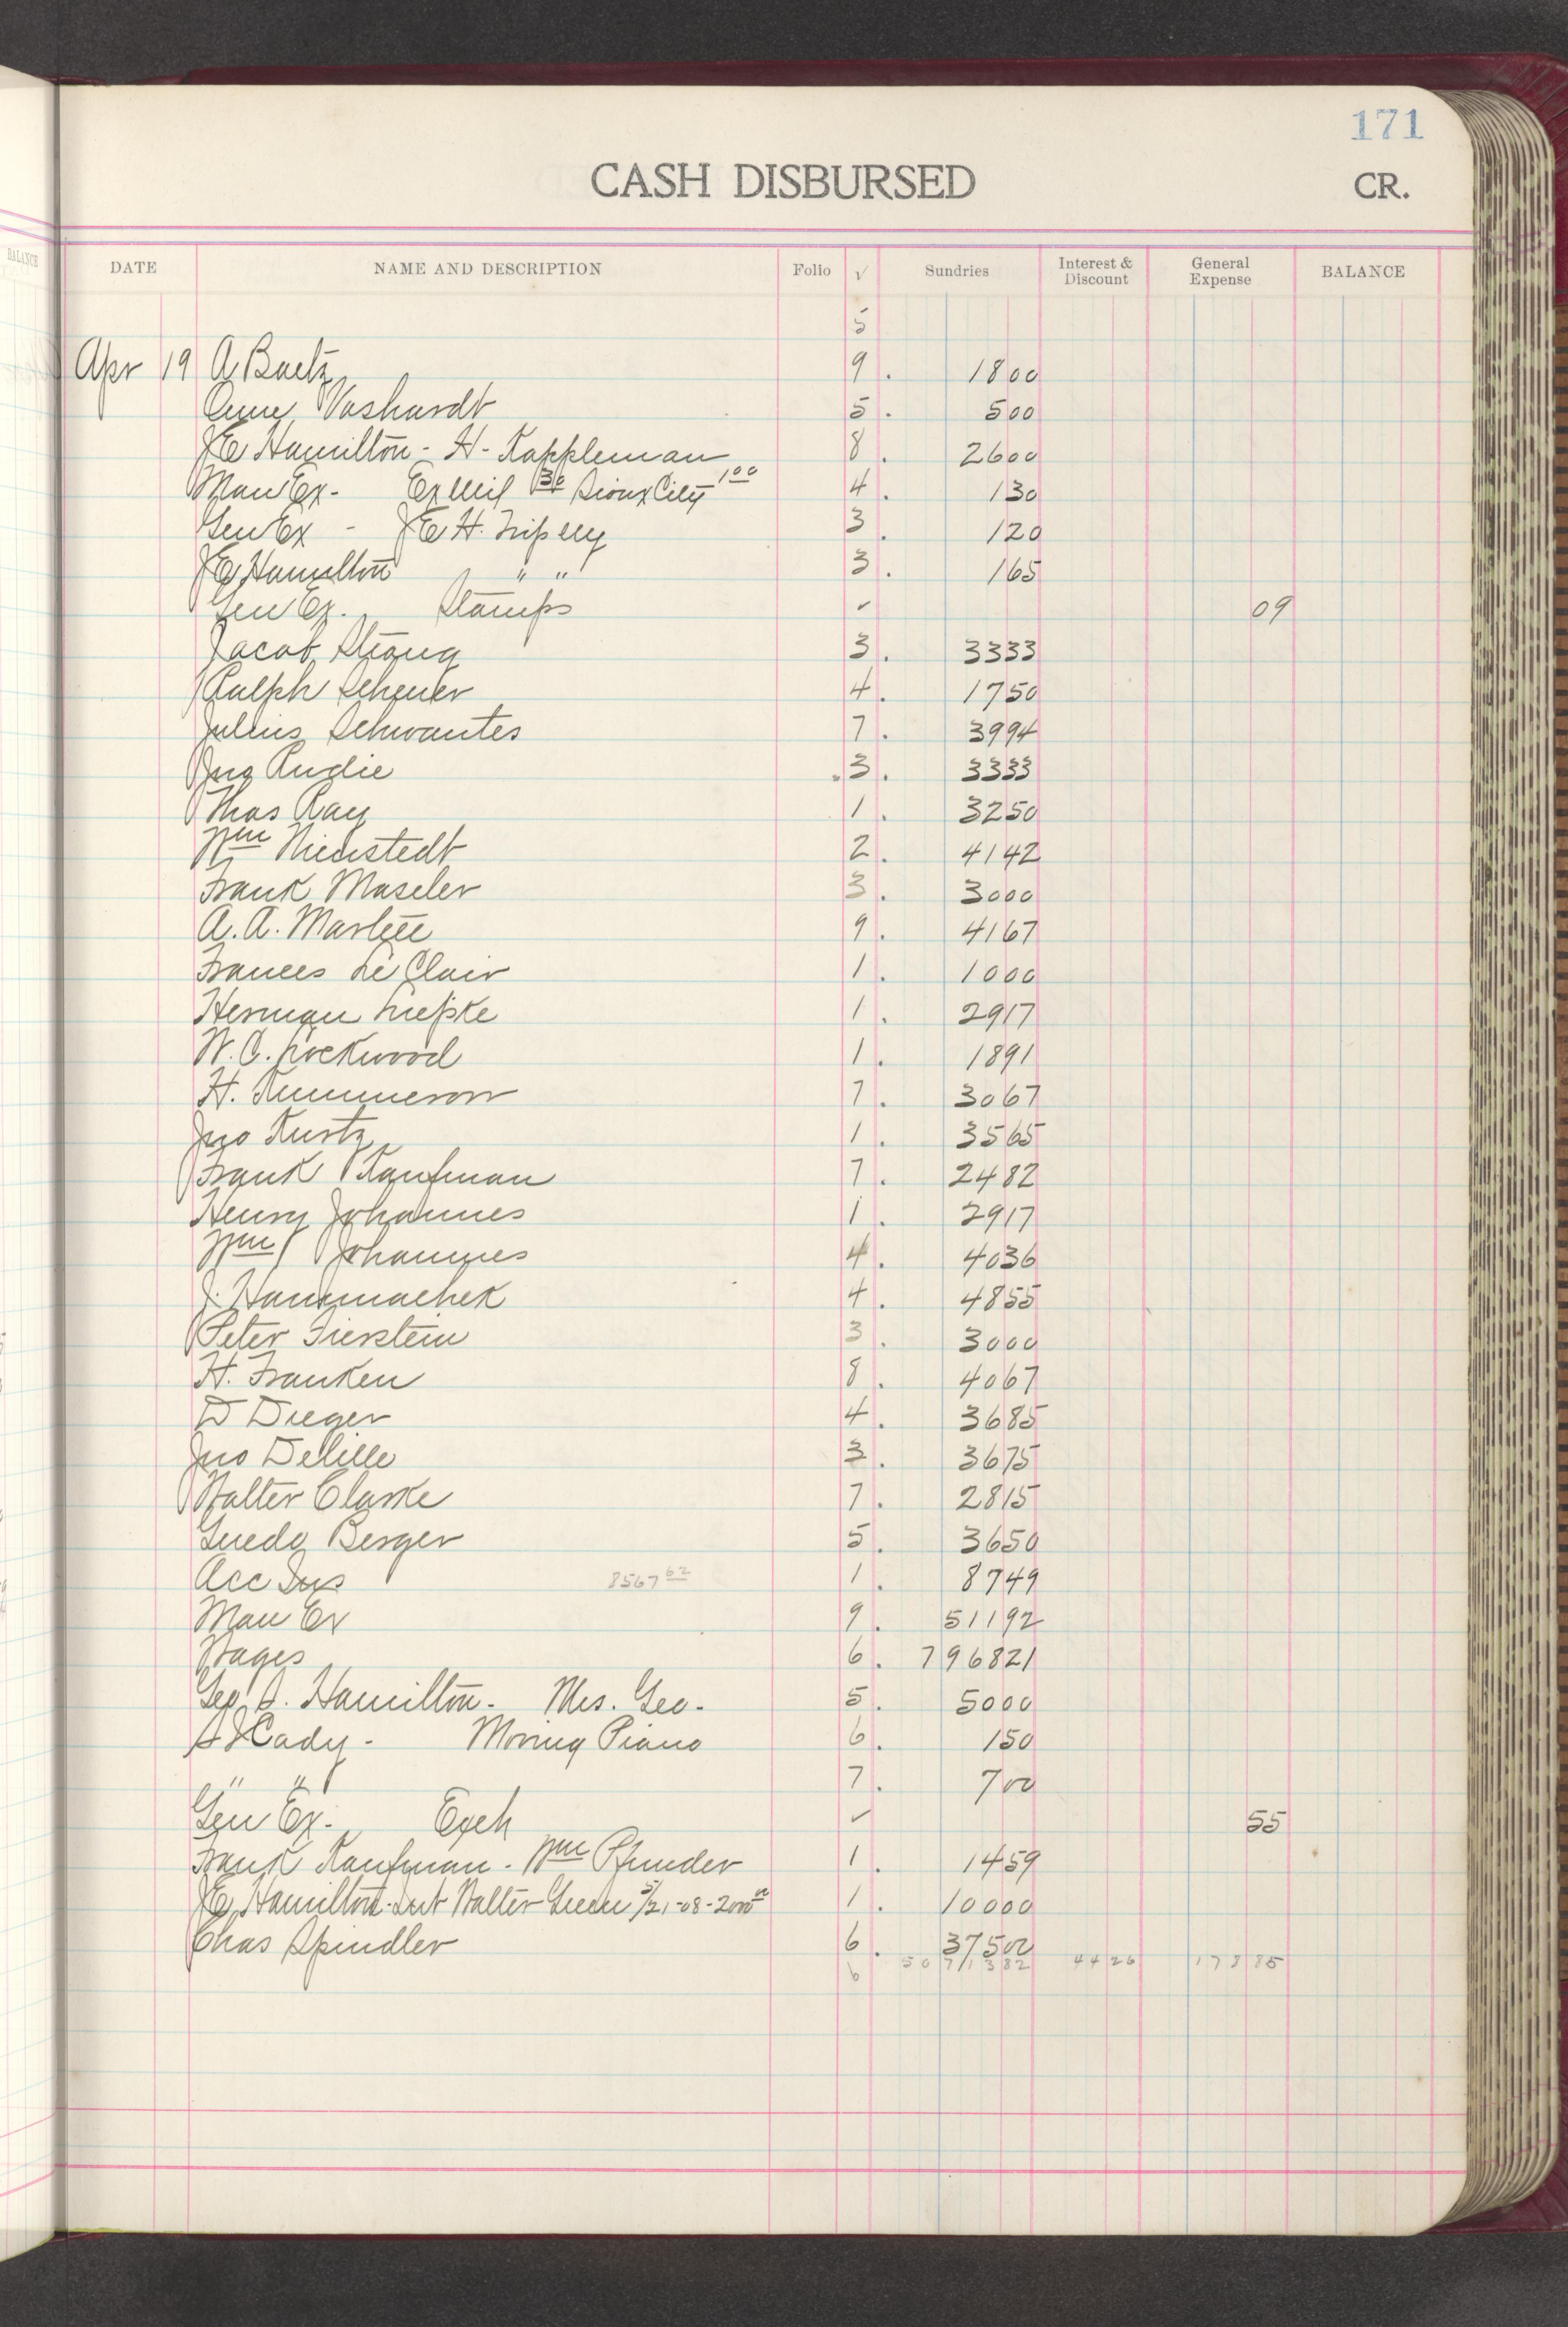 171
CASH DISBURSED CR.
BALANCE
DATE NAME AND DESCRIPTION Folio √ Sundries Interest & Discount General Expense BALANCE
5
Apr 19 A Baetz 9 . 18 00
Vashardt 5 . 5 00
JE Hamilton - H - Kappleman 8 . 26 00
Man Ex - Ex Mil 30 Sioux City 1 00 4 . 1 30
Gen Ex - JEH. Trip 3 . 1 20
JE Hamilton " " 3 . 1 65
Gen Ex. Stamps ✓ 09
Jacob Strang 3 . 33 33
Ralph Scheuer 4 . 17 50
Julius Schwantes 7 . 39 94
Jno Rudie 3 . 33 33
Thos Ray 1 . 32 50
Wm Nienstedt 2 . 41 42
Frank Maseler 3 . 30 00
A. A. Martell 9 . 41 67
Frances Le Clair 1 . 10 00
Herman Liepke 1 . 29 17
W. C. Lockwood 1 . 18 91
H. Kummerow 7 . 30 67
Jno Kurtz 1 . 35 65
Frank Kaufman 7 . 24 82
Henry Johannes 1 . 29 17
Wm Johannes 4 . 40 36
J. Hammachek 4 . 48 55
Peter Fierstein 3 . 30 00
H. Franken 8 . 40 67
D Dreger 4 . 36 85
Jno Delille 3 . 36 75
Walter Clarke 7 . 28 15
Guedo Berger 5 . 36 50
Acc Ins 8567 62 1 . 87 49
Man Ex 9 . 511 92
Wages 6 . 7968 21
Geo. S. Hamilton - Mrs. Geo - 5 . 50 00
S J Cady - Moving Piano 6 . 1 50
" " 7 . 7 00
Gen Ex. Exch ✓ 55
Frank Kaufman - Wm Pfunder 1 . 14 59
JE Hamilton - Int Walter Green 5/21-08-2000 00 1 . 100 00
Chas Spindler 6 . 375 00
6 50 71 3 82 44 26 178 85